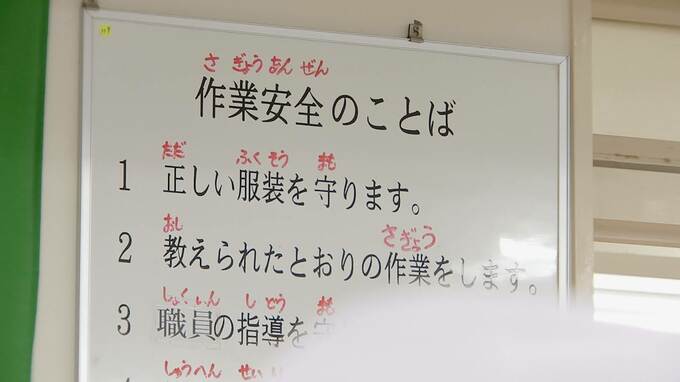 さ ぎょう あん ぜん
作業安全のことば
ただ ふく そう まも
1 正しい服装を守ります。
おし さぎょう
2 教えられたとおりの作業をします。
しょく いん し どう まも
3 職員の指導を守
しゅうへん せい